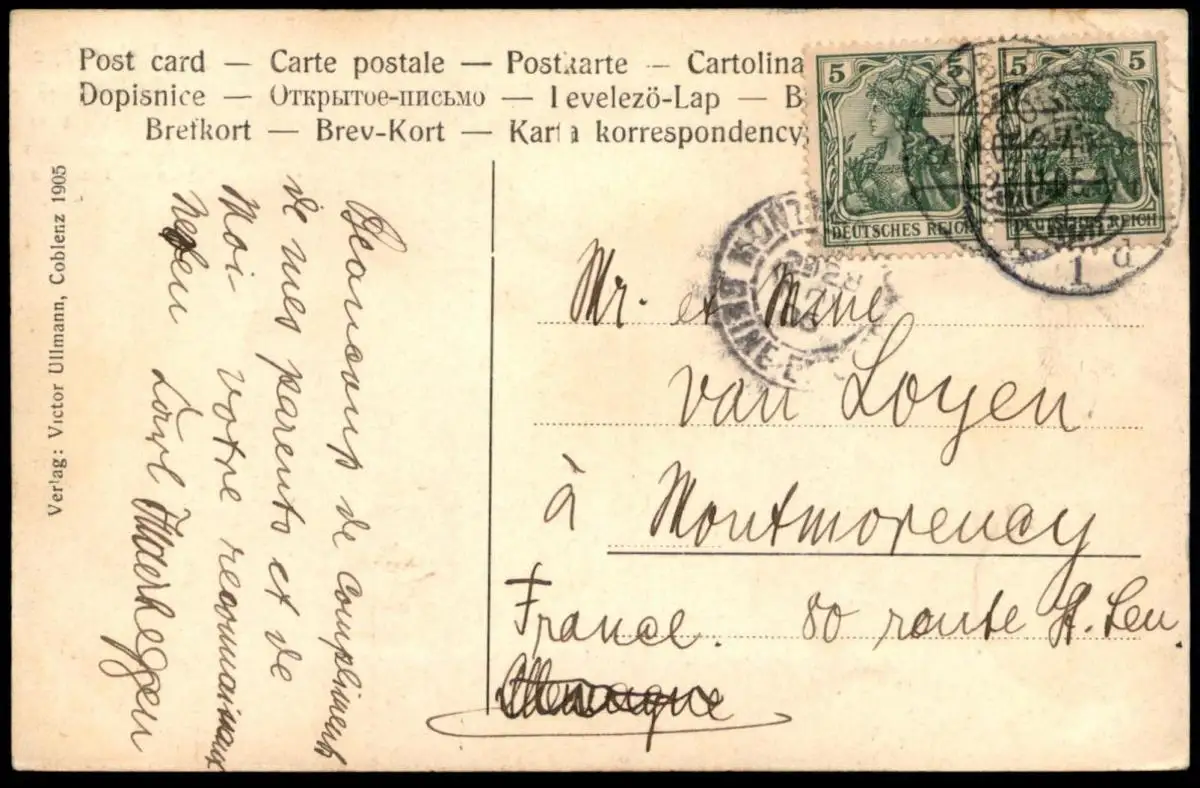 Post card — Carte postale — Postkarte — Cartolina
Dopisnice — Открытое-письмо — Levelezö-Lap — B
Brefkort — Brev-Kort — Karta korrespondency
5 5
DEUTSCHES REICH
5 5
DEUTSCHES REICH
1 d
Verlag: Victor Ullmann, Coblenz 1905
Beaucoup de compliments
de mes parents et de
Moi- votre reconnaissant
neveu
Mr. et Mme
van Loyen
à Montmorency
France. 80 route St. Leu.
Allemagne